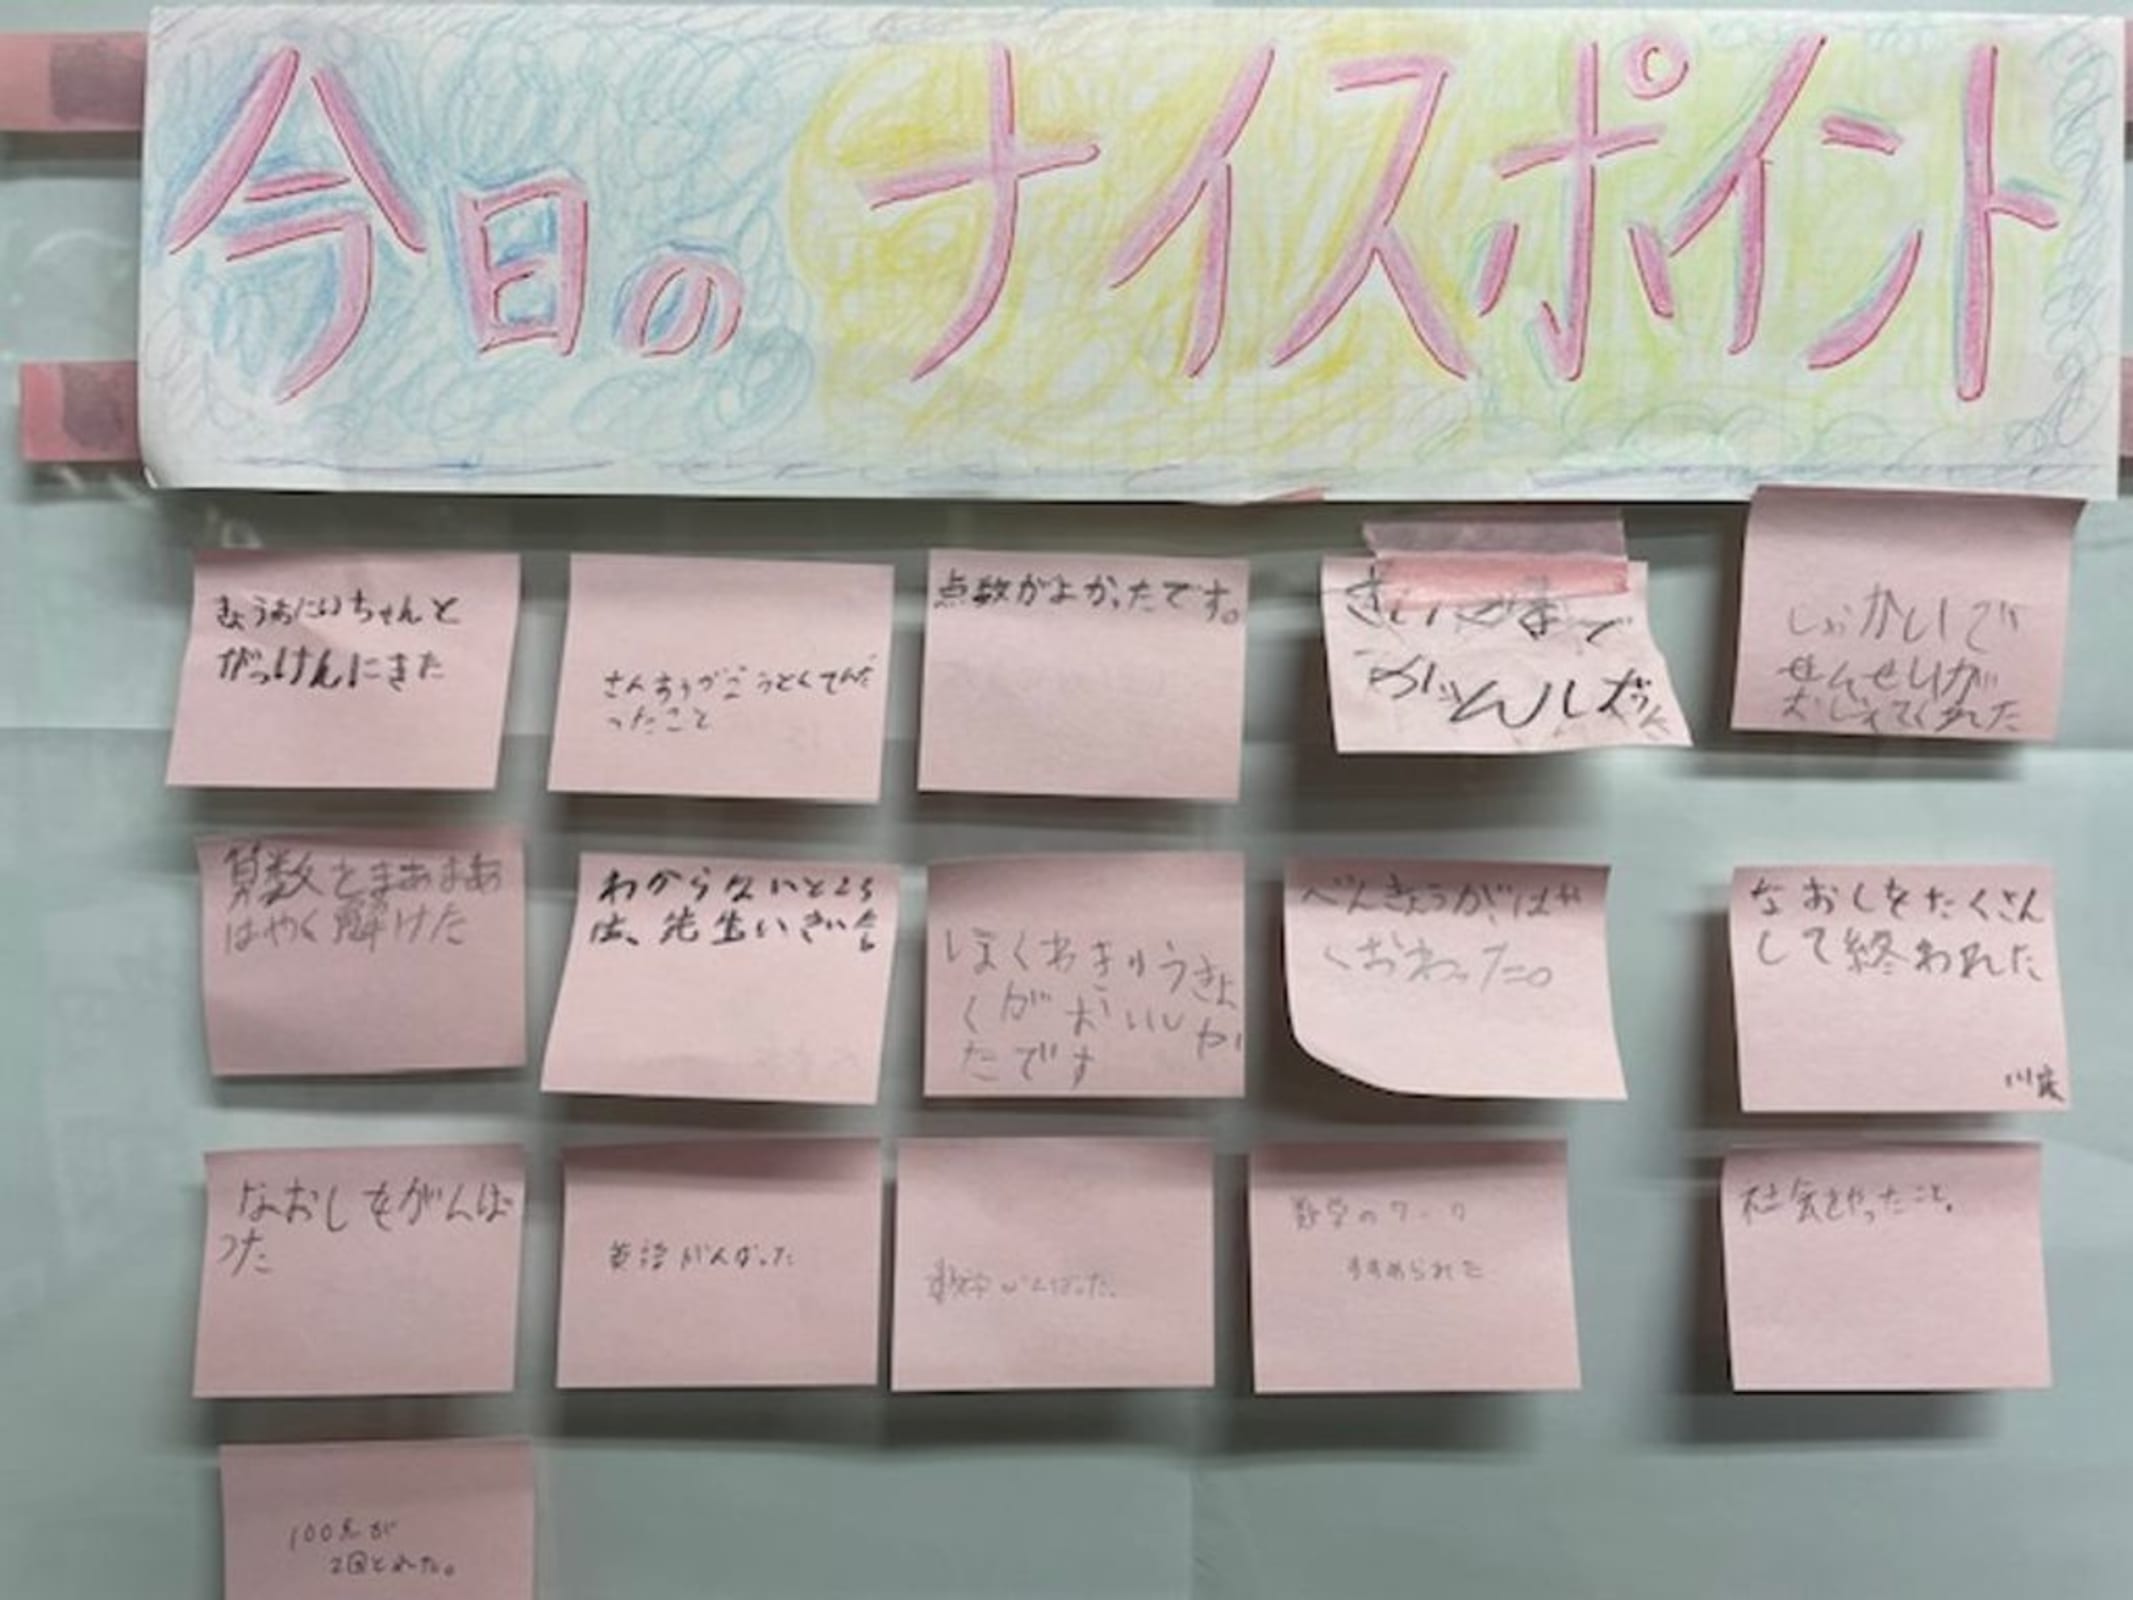 今日のナイスポイント
きょうおにいちゃんと
がっけんにきた
さんすうが
ったこと
点数がよかったです。
さいごまで
しゃかいで
せんせいが
おしえてくれた
算数をまあまあ
はやく解けた
わからないところ
は、先生いきい
ほくわきゅうきょ
くがおいしか
たです
べんきょうがはや
くおわった。
なおしをたくさん
して終われた
なおしをがんば
った
英語がんばった
数学がんばった
数学のワーク
すすめられた
社会をやったこと。
100点が
2回とれた。